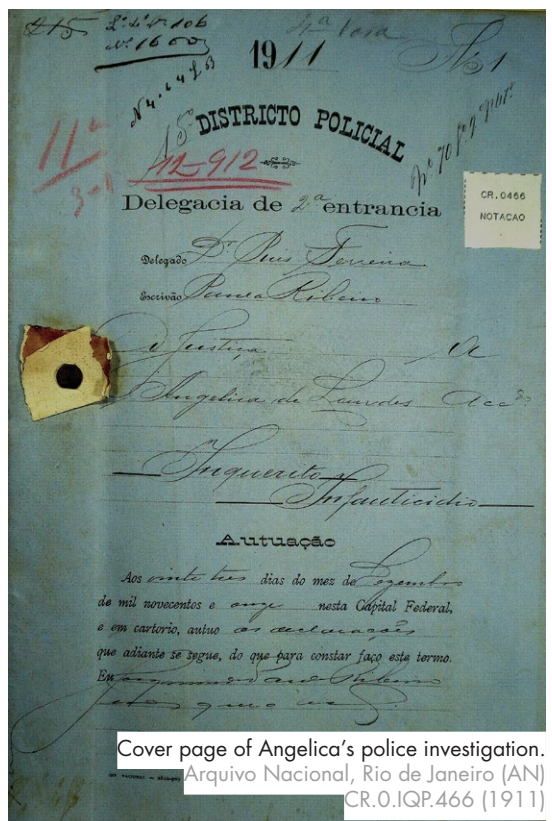 215 Lº 4º Vº 106 4ª Vara
Nº 1600
1911 Nº 1
N 4.
15º DISTRICTO POLICIAL
11ª
12-912
Delegacia de 2ª entrancia
CR.0466
NOTACAO
Delegado Dr Ferreira
Escrivão Ribeiro
A Justiça A
Angelica de Lourdes Acc
Inquerito
Infanticidio
Autuação
Aos vinte tres dias do mez de Dezembro
de mil novecentos e onze nesta Capital Federal,
e em cartorio, autuo as declarações
que adiante se segue, do que para constar faço este termo.
Eu Ribeiro
Cover page of Angelica's police investigation.
Arquivo Nacional, Rio de Janeiro (AN)
CR.0.IQP.466 (1911)